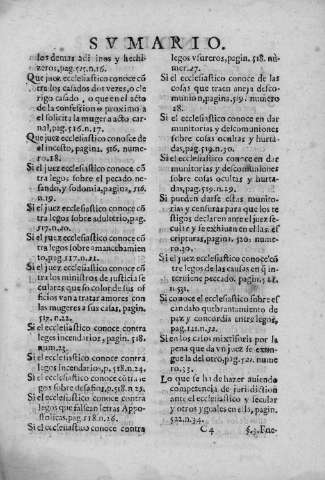 SVMARIO.
los demas adi inos y hechi
zeros, pag. 515. n. 16.
Que juez ecclesiastico conoce cõ
tra los casados dos vezes, o cle
rigo casado, o que en el acto
de la confession o proximo a
el solicita la muger a acto car
nal, pag. 516. n. 17.
Que juez ecclesiastico conosce de
el incesto, pagina, 516. nume,
ro. 18.
Si el juez ecclesiastico conoce cõ
tra legos sobre el pecado ne-
fando, y sodomia, pagina, 516.
n. 19.
Si el juez ecclesiastico conoce cõ
tra legos sobre adulterio, pag.
517. n. 20.
Si el juez ecclesiastico conoce cõ
tra legos sobre amancebamien
to, pag. 517. n. 21.
Si el juez ecclesiastico conoce cõ
tra los ministros de justicia se
culares que so color de sus of
ficios van a tratar amores con
las mugeres a sus casas, pagin.
517. n. 22.
Si el ecclesiastico conoce contra
legos incendiarios, pagin. 518
num. 23.
Si el ecclesiastico conoce contra
legos incendarios, p. 518. n. 24.
Si el ecclesiastico conoce contra le
gos sobre desafios, p. 518. n. 25.
Si el ecclesiastico conoce contra
legos que falsean letras Appo-
stolicas, pag. 518. n. 26.
Si el ecclesiastico conoce contra
legos vsureros, pagin. 518. nu-
mer. 27.
Si el ecclesiastico conoce de las
cosas que traen aneja desco-
munion, pagina, 519. numero
28.
Si el ecclesiastico conoce en dar
munitorias y descomuniones
sobre cosas ocultas y hurta-
das, pag. 519. n. 29.
Si el ecclesiastico conoce en dar
munitorias y descomuniones
sobre cosas ocultas y hurta-
das, pag. 519. n. 29.
Si pueden darse estas munito-
rias y censuras para que los te
stigos declaren ante el juez se
cular y se exhiuan en ella es
cripturas, pagin. 520. nume-
ro. 30.
Si el juez ecclesiastico conoce cõ
tre legos de las causas en q̃ in
teruiene peccado, pagin.
n. 31.
Si conoce el ecclesiastico sobre es
candalo quebrantamiento de
paz y concordia entre legos,
pag. 521. n. 32.
Si en los casos mixtifuris por la
pena que da vn juez se extin-
gue la del otro, pag. 522. nume
ro. 33.
Lo que se ha de hazer auiendo
competencia de jurisdiction
ante el ecclesiastico y secular
y otros yguales en ella, pagin.
522. n. 34.
C 4
§. 3. Fue-